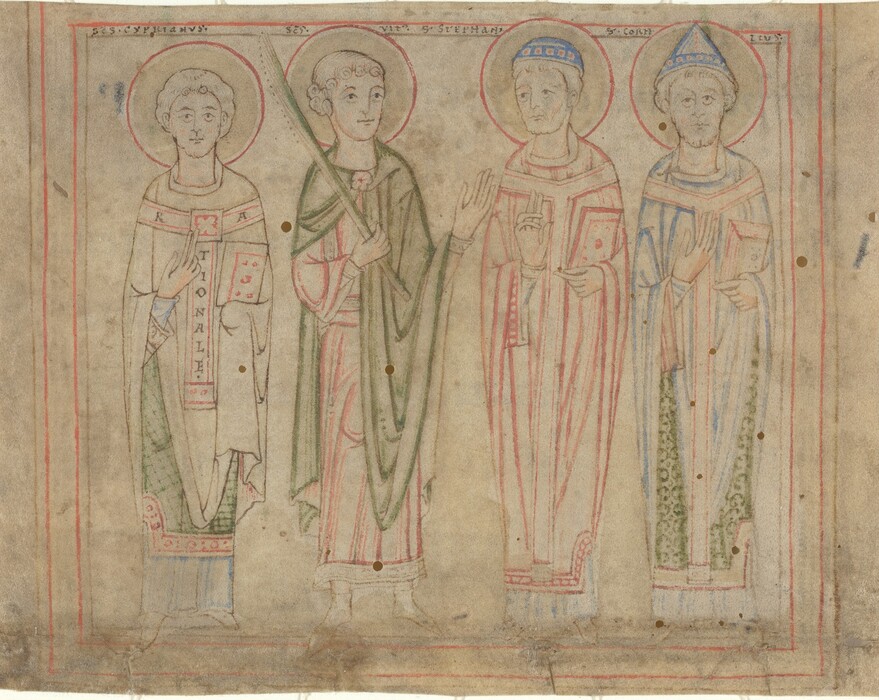 SCS · CYPRIANVS · SCS VITꝰ S · STEPHANꝰ S · CORNELIVS ·
R A
TIONALE ·